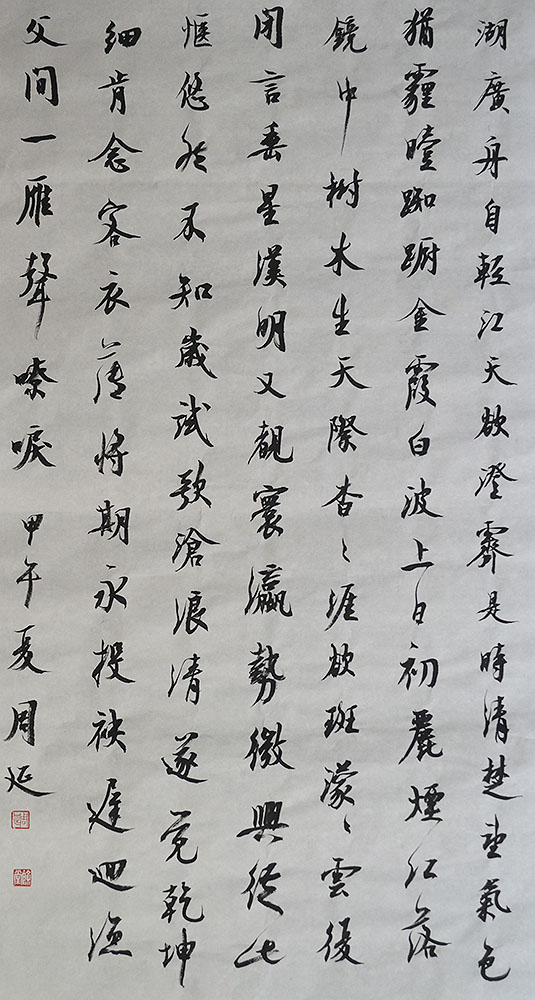 湖廣舟自輕江天欲澄霽是時清楚望氣色
猶霾曀踟蹰金霞白波上日初麗煙虹落
鏡中樹木生天際杳〻涯欲斑濛〻雲復
閉言垂星漢明又覩寰瀛勢微興從此
愜悠然不知歲試歌滄浪清遂覺乾坤
細肯念客衣薄將期永投袂遲迴漁
父間一雁聲嘹唳甲午夏周延